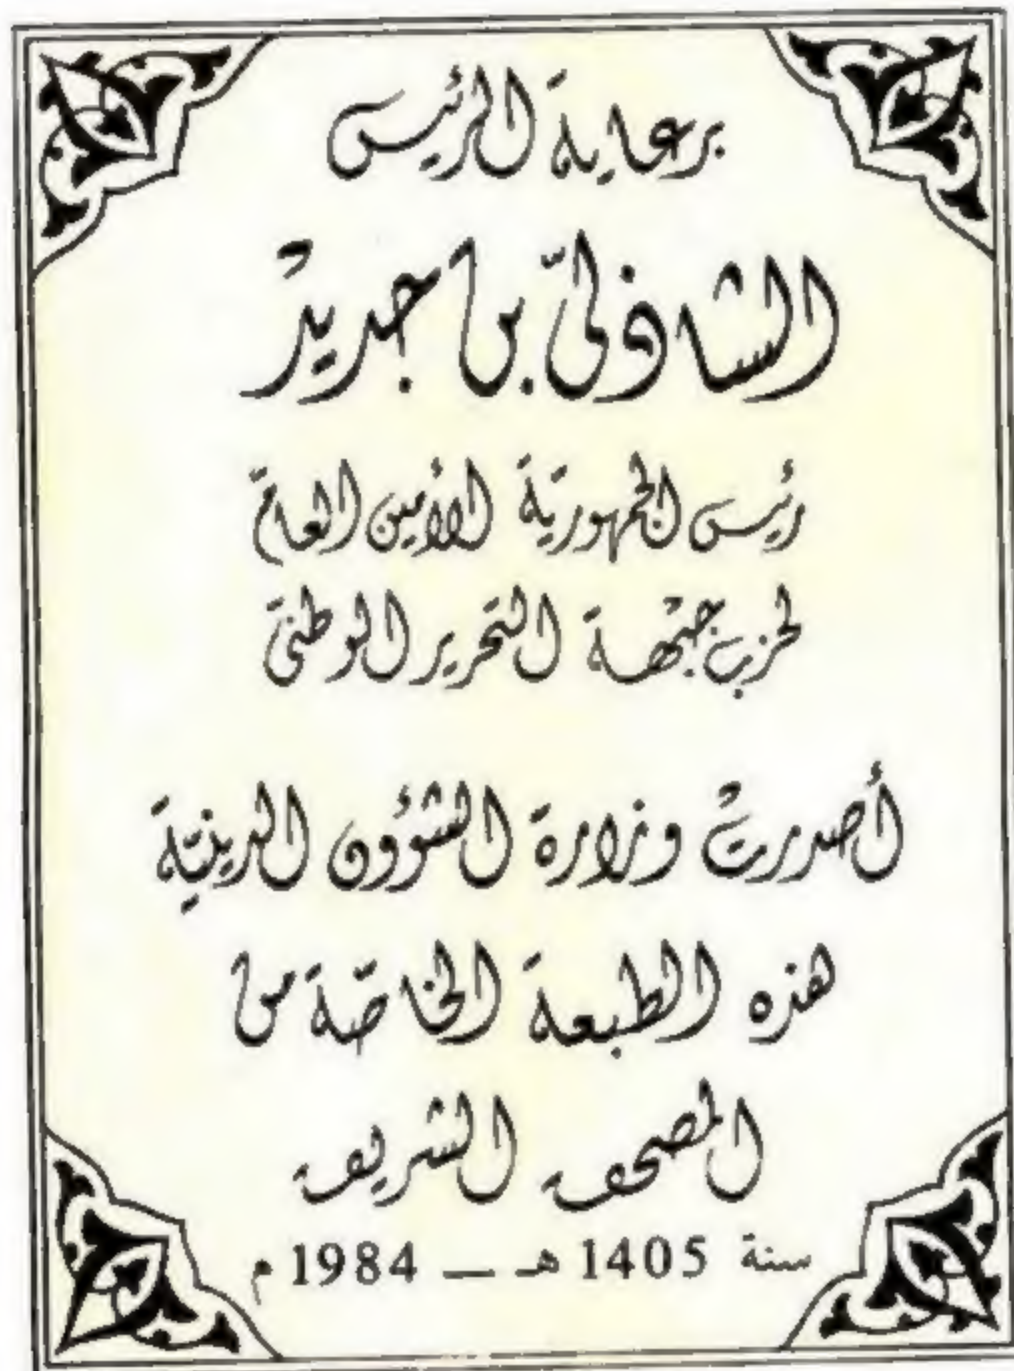 برعاية الرئيس
الشاذلي بن جديد
رئيس الجمهورية الأمين العام
لحزب جبهة التحرير الوطني
أصدرت وزارة الشؤون الدينية
هذه الطبعة الخاصة من
المصحف الشريف
سنة 1405 هـ — 1984 م